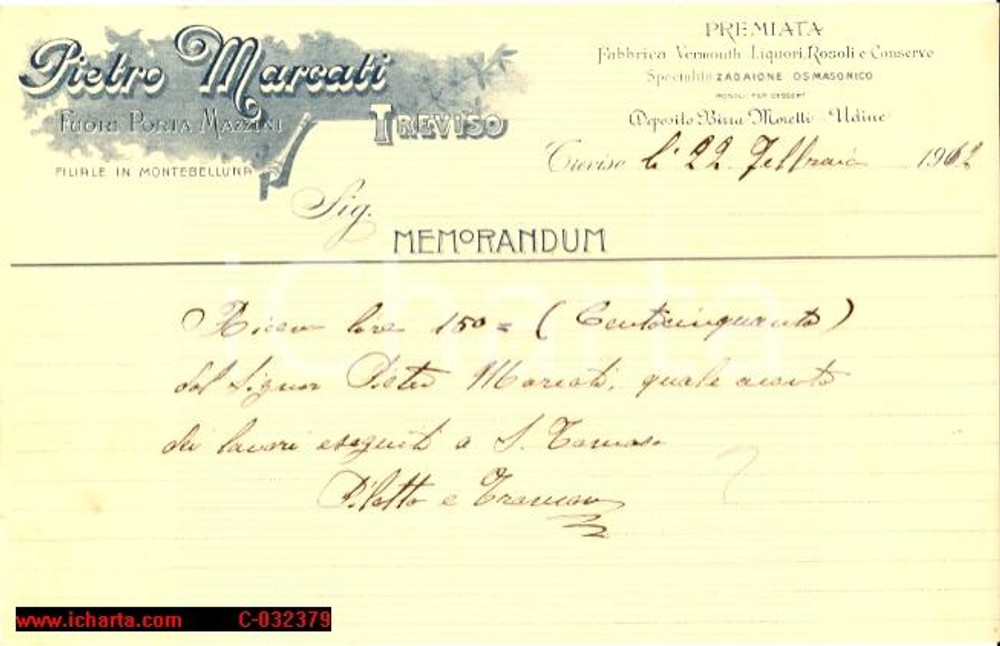 Pietro Marcati
Fuori Porta Mazzini
Treviso
FILIALE IN MONTEBELLUNA
PREMIATA
Fabbrica Vermouth Liquori, Rosoli e Conserve
Specialità ZABAIONE OSMASONICO
MONDIAL PER DESSERT
Deposito Birra Moretti - Udine
Treviso li 22 Febbraio 1912
Sig.
MEMORANDUM
Ricevo lire 150 = (Centocinquanta)
dal Signor Pietro Marcati, quale acconto
dei lavori eseguiti a S. Tomaso
Pilotto e
iCharta
www.icharta.com C-032379